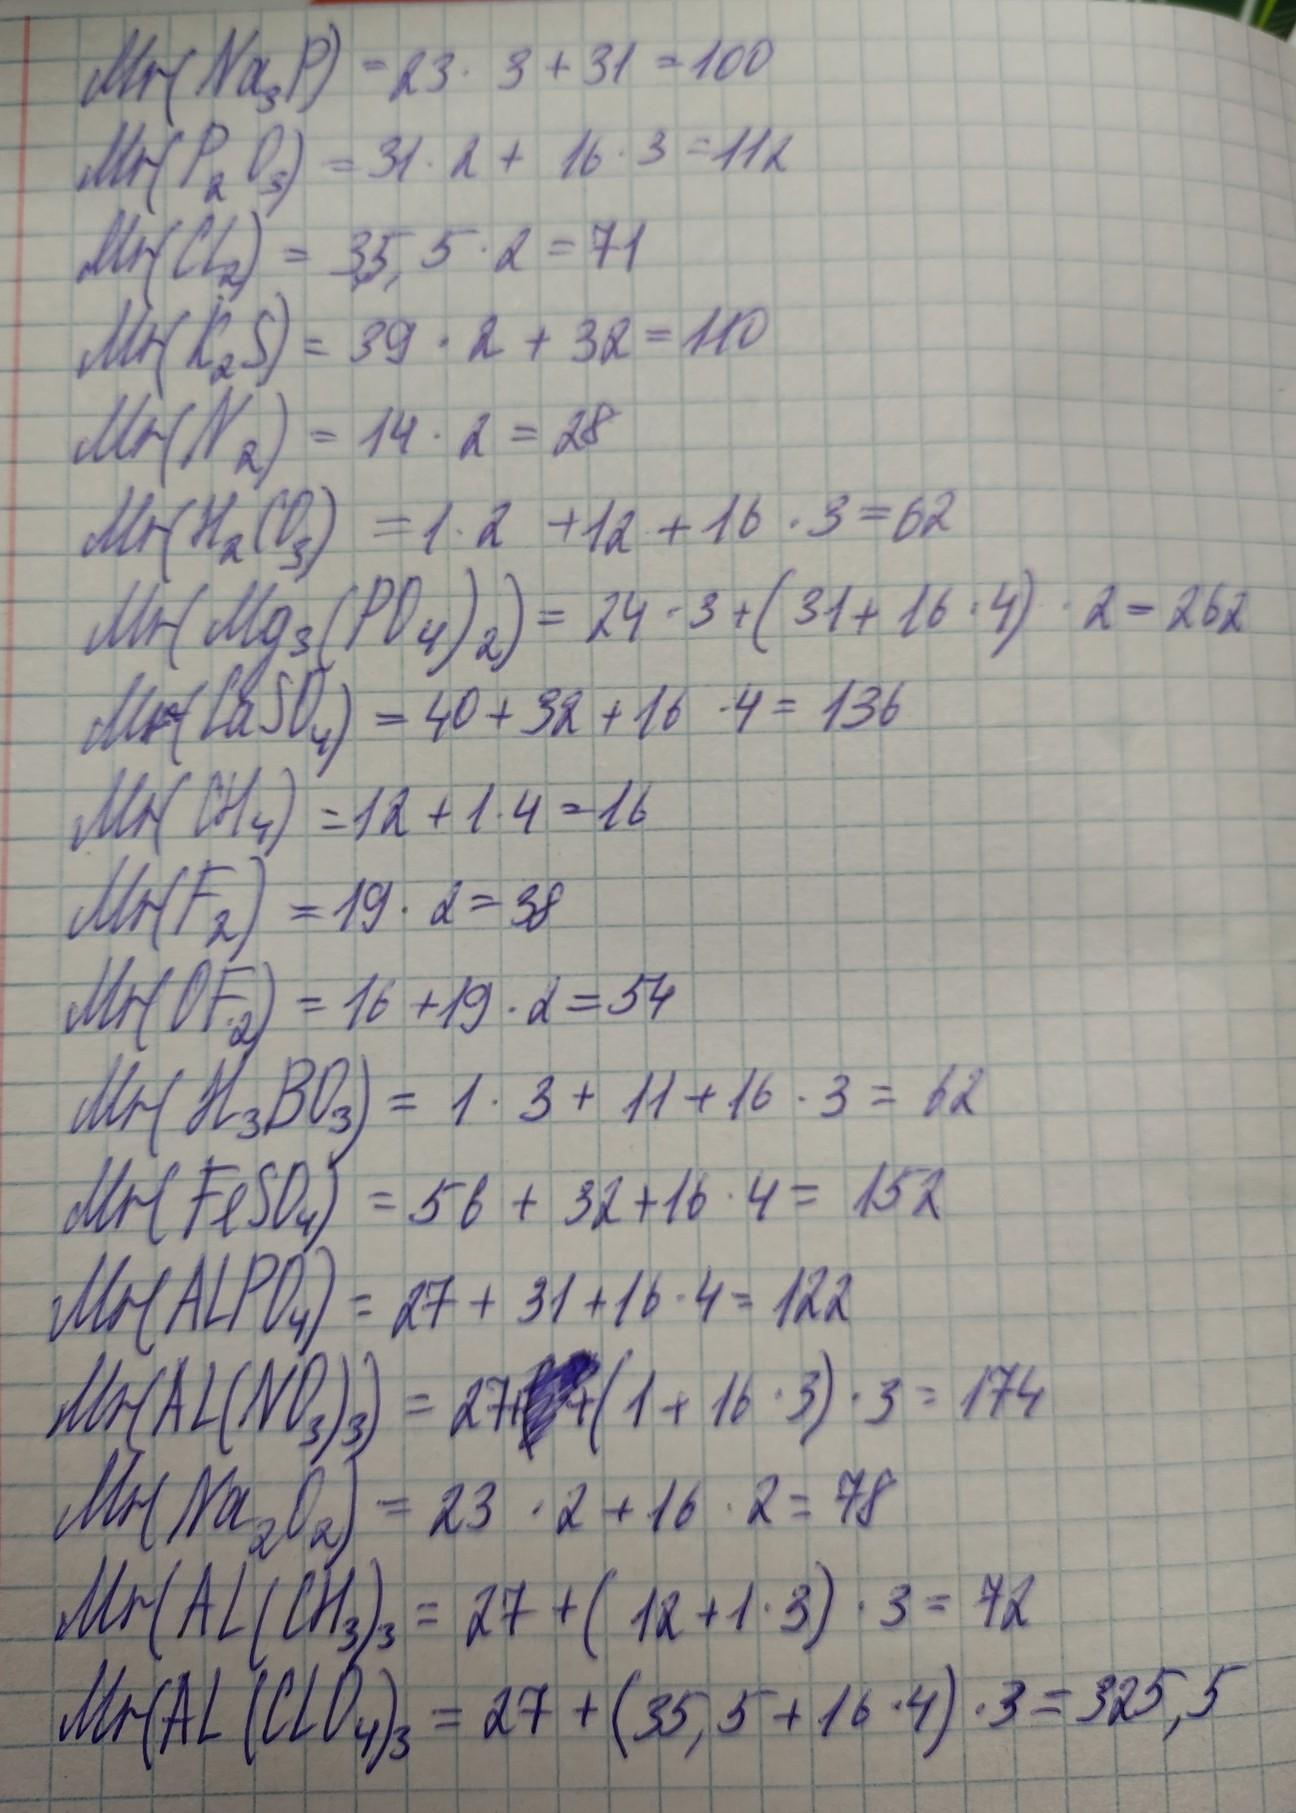 Mr(Na₃P) = 23 · 3 + 31 = 100
Mr(P₂O₃) = 31 · 2 + 16 · 3 = 112
Mr(CL₂) = 35,5 · 2 = 71
Mr(K₂S) = 39 · 2 + 32 = 110
Mr(N₂) = 14 · 2 = 28
Mr(H₂CO₃) = 1 · 2 + 12 + 16 · 3 = 62
Mr(Mg₃(PO₄)₂) = 24 · 3 + (31 + 16 · 4) · 2 = 262
Mr(CaSO₄) = 40 + 32 + 16 · 4 = 136
Mr(CH₄) = 12 + 1 · 4 = 16
Mr(F₂) = 19 · 2 = 38
Mr(OF₂) = 16 + 19 · 2 = 54
Mr(H₃BO₃) = 1 · 3 + 11 + 16 · 3 = 62
Mr(FeSO₄) = 56 + 32 + 16 · 4 = 152
Mr(ALPO₄) = 27 + 31 + 16 · 4 = 122
Mr(AL(NO₃)₃) = 27 + (1 + 16 · 3) · 3 = 174
Mr(Na₂O₂) = 23 · 2 + 16 · 2 = 78
Mr(AL(CH₃)₃ = 27 + (12 + 1 · 3) · 3 = 72
Mr(AL(CLO₄)₃ = 27 + (35,5 + 16 · 4) · 3 = 325,5